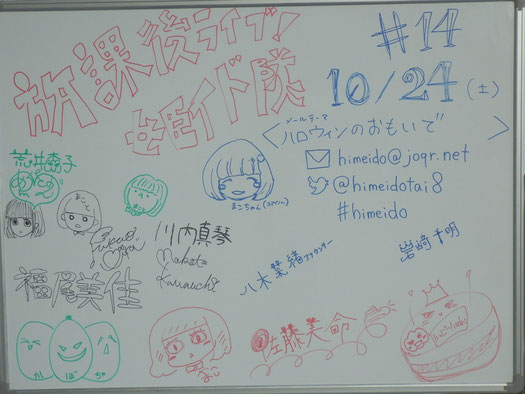 放課後ライブ!
姫イド隊
#14
10/24(土)
メールテーマ
<ハロウィンのおもいで>
himeido@joqr.net
@himeidotai8
#himeido
荒井杏子
まこと
まこちゃん(スマイリー)
川内真琴
Makoto
Kawauchi
福尾美佳
八木菜緒アナウンサー
岩崎千明
佐藤美命
かぼちゃ